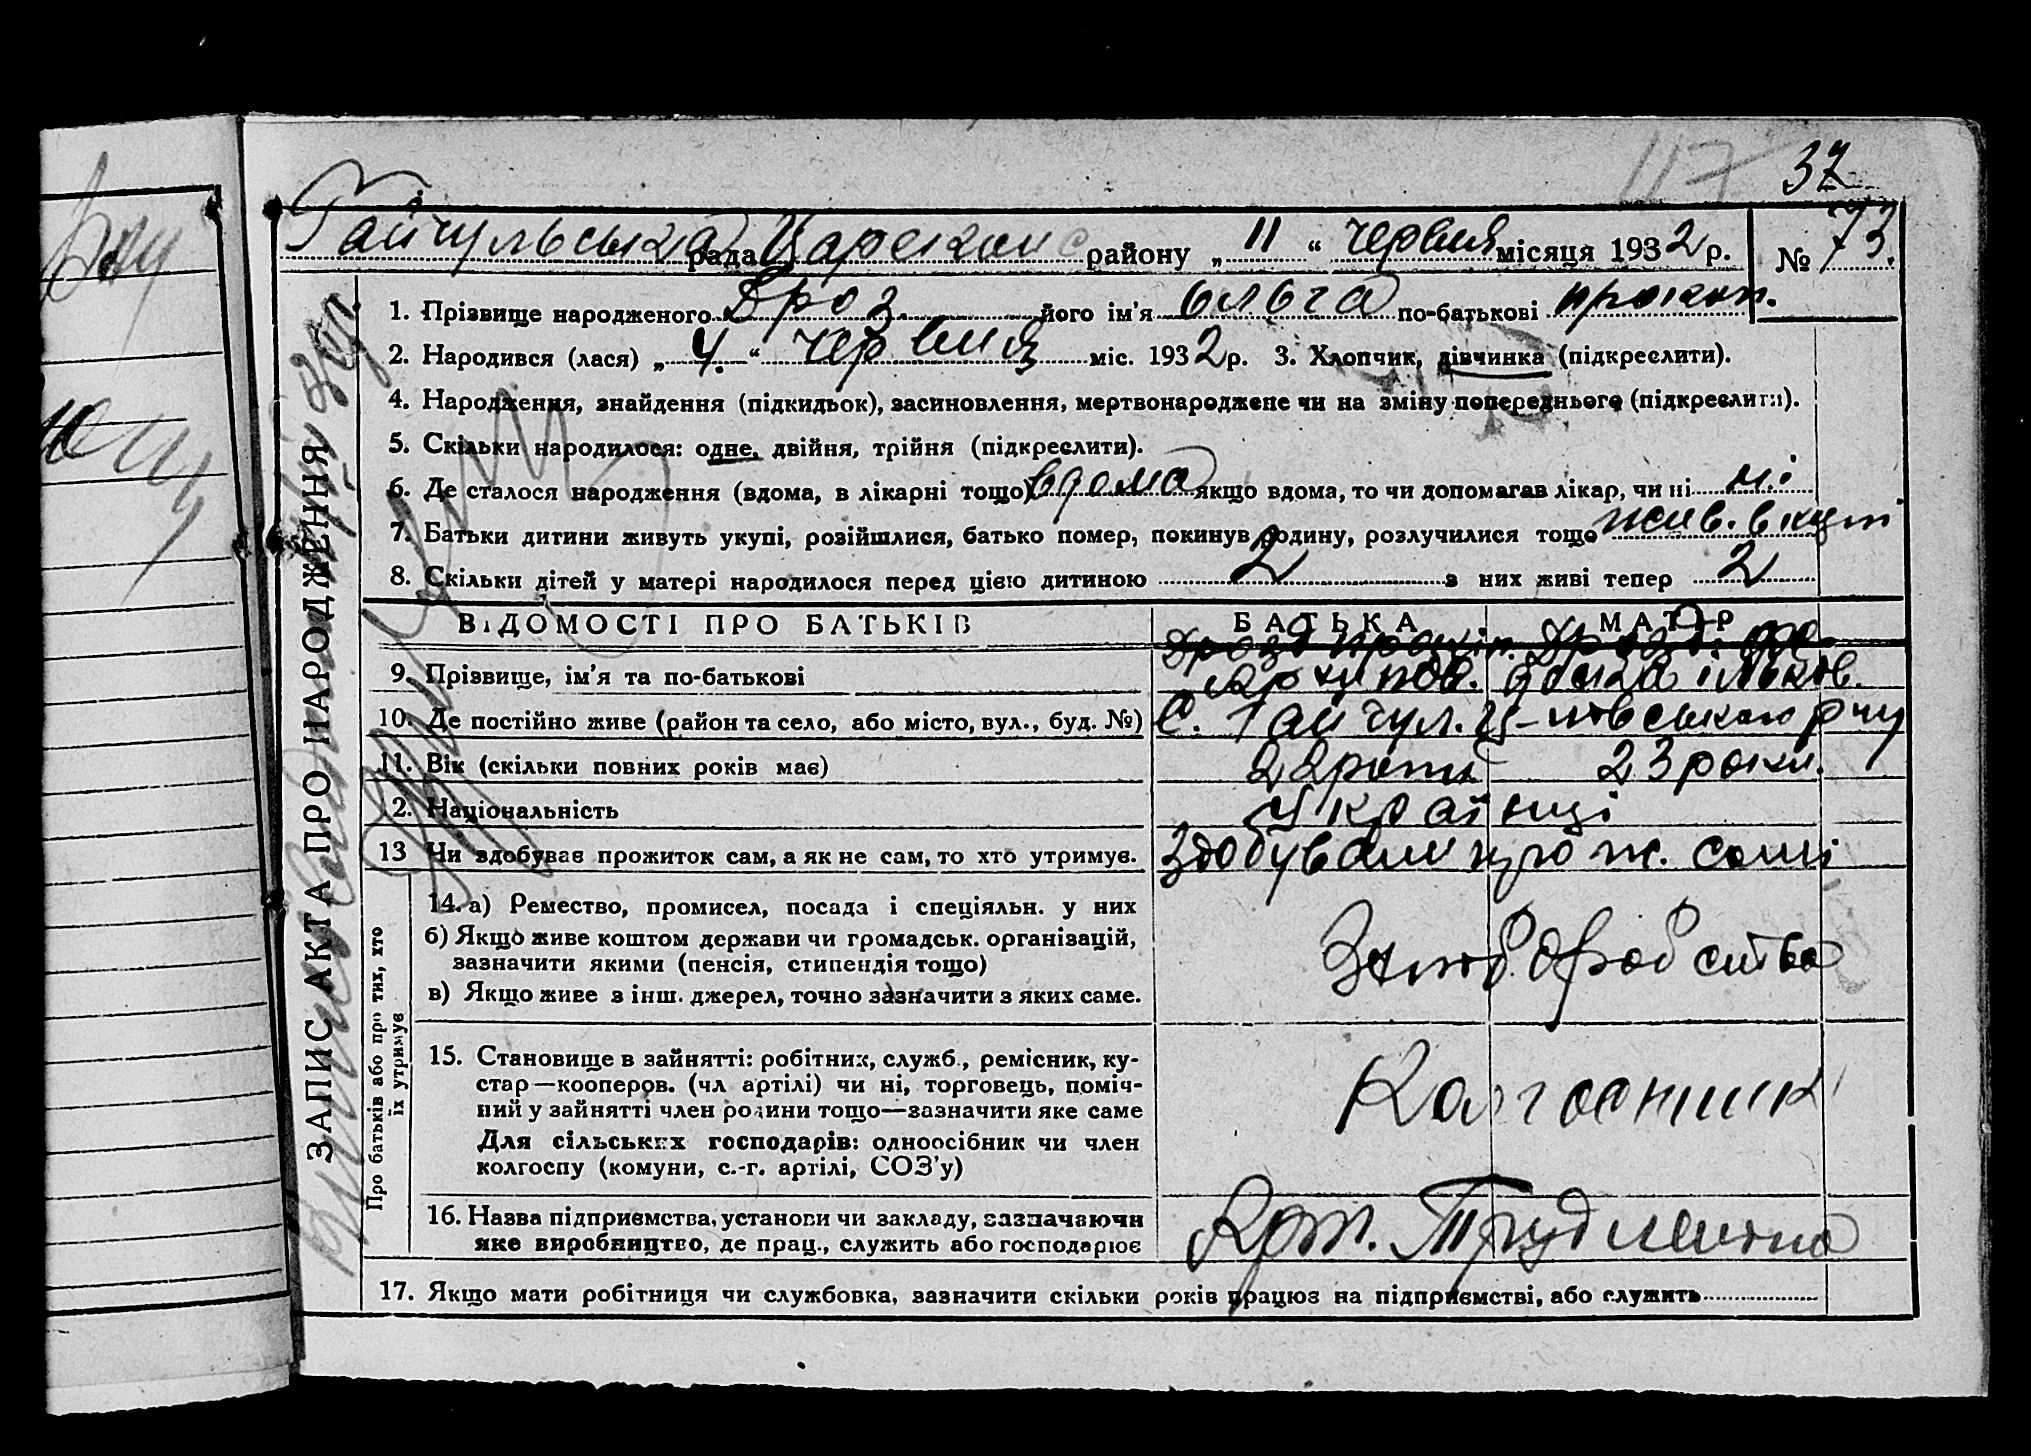 37
117
Гайчульська рада Царекон с району „ 11 “ червня місяця 1932 р. № 73.
1. Прізвище народженого Дроз його ім'я Ольга по-батькові прокоп.
2. Народився (лася) „ 4. “ червня міс. 1932 р. 3. Хлопчик, дівчинка (підкреслити).
4. Народження, знайдення (підкидьок), засиновлення, мертвонароджене чи на зміну попереднього (підкреслити).
5. Скільки народилося: одне, двійня, трійня (підкреслити).
6. Де сталося народження (вдома, в лікарні тощо) вдома якщо вдома, то чи допомагав лікар, чи ні ні
7. Батьки дитини живуть укупі, розійшлися, батько помер, покинув родину, розлучилися тощо жив. вкупі
8. Скільки дітей у матері народилося перед цією дитиною 2 з них живі тепер 2
ЗАПИС АКТА ПРО НАРОДЖЕННЯ
ВІДОМОСТІ ПРО БАТЬКІВ БАТЬКА МАТІР
9. Прізвище, ім'я та по-батькові
10. Де постійно живе (район та село, або місто, вул., буд. №) С. Гайчул.
11. Вік (скільки повних років має) 22 роки 23 роки.
12. Національність Українці
13 Чи здобував прожиток сам, а як не сам, то хто утримує. Здобували прож. самі
Про батьків або про тих, хто
їх утримує
14. а) Ремество, промисел, посада і спеціяльн. у них
б) Якщо живе коштом держави чи громадськ. організацій,
зазначити якими (пенсія, стипендія тощо)
в) Якщо живе з інш. джерел, точно зазначити з яких саме.
15. Становище в зайнятті: робітник, служб., ремісник, ку-
стар—кооперов. (чл артілі) чи ні, торговець, поміч-
ний у зайнятті член родини тощо—зазначити яке саме
Для сільських господарів: одноосібник чи член
колгоспу (комуни, с.-г. артілі, СОЗ'у)
Колгоспник
16. Назва підприємства, установи чи закладу, зазначаючи
яке виробництво, де прац., служить або господарює
17. Якщо мати робітниця чи службовка, зазначити скільки років працює на підприємстві, або служить